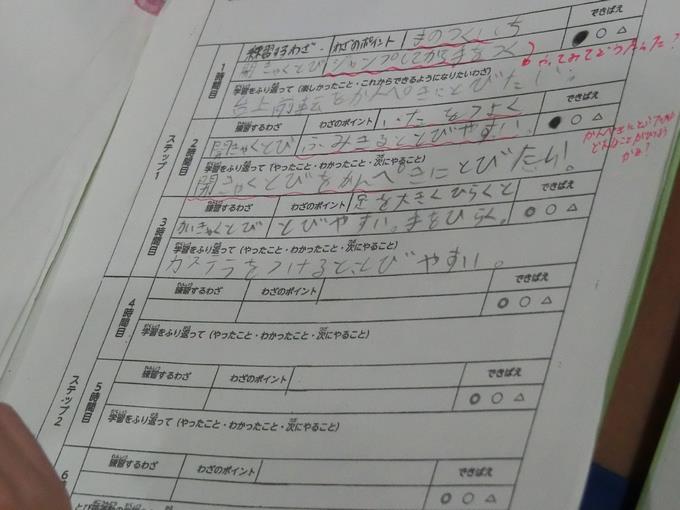 練習するわざ わざのポイント 手のつくいち できばえ
1時間目 開きゃくとび ジャンプしてから手をつく ◎ ○ △
学習をふり返って(楽しかったこと・これからできるようになりたいわざ)
台上前転をかんぺきにとびたい。
やってみてどうだった?
ステップ1
練習するわざ わざのポイント いたをつよく できばえ
2時間目 開きゃくとび ふみきるととびやすい。 ◎ ○ △
学習をふり返って(やったこと・わかったこと・次にやること)
開きゃくとびをかんぺきにとびたい!
かんぺきにとぶ
どんなことが
かな?
練習するわざ わざのポイント 足を大きくひらくと できばえ
3時間目 かいきゃくとび とびやすい。手をひらく。 ◎ ○ △
学習をふり返って(やったこと・わかったこと・次にやること)
カステラをつけると、とびやすい。
練習するわざ わざのポイント できばえ
4時間目 ◎ ○ △
学習をふり返って(やったこと・わかったこと・次にやること)
ステップ2
練習するわざ わざのポイント できばえ
5時間目 ◎ ○ △
学習をふり返って(やったこと・わかったこと・次にやること)
練習するわざ わざのポイント できばえ
6 ◎ ○ △